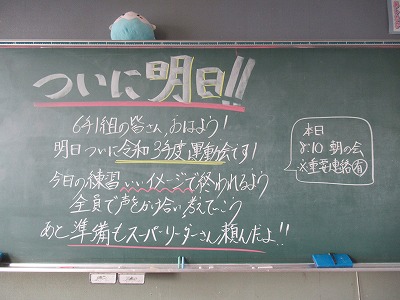 ついに明日!!
6年1組の皆さん、おはよう!
明日ついに令和3年度運動会です!
今日の練習いいイメージで終われるよう
全員で声をかけ合い、考えていこう
あと準備もスーパーリーダーさん頼んだよ!!
本日
8:10 朝の会
※重要連絡㊒